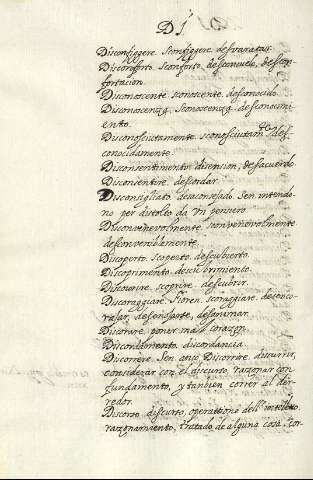 DI
Disconfiggere. sconfiggere desvaratar.
Disconforto. sconforto. desconsuelo, descon-
fortacion.
Disconoscente. sconoscente. desconocido.
Disconoscenza. sconoscenza. desconocimi-
ento.
Disconosciutamente. sconosciutam.te des-
conocidamente.
Disconsentimento. disension, desacuerdo.
Disconsentire. descordar.
Disconsigliato. desaconsejado. Sen. intende-
no per distolto da un pensiero.
Disconvenevolmente. sconvenevolmente.
desconveniblemente.
Discoperto. scoperto. descubierto.
Discoprimento. descubrimiento.
Discoprire. scoprire. descubrir.
Discoraggiare. Fioren. scoraggiare. desenco-
rajar, desesforçar, desanimar.
Discorare. poner mal corazon.
Discordamento. discordancia.
Discorrere. Sen. anco Discorrire. discurrir,
considerar con el discurso, razonar con
fundamento, y tambien correr al der-
redor.
Discorso. discurso, operattione dell'intelletto
razonamiento, tratado de alguna cosa. cor-